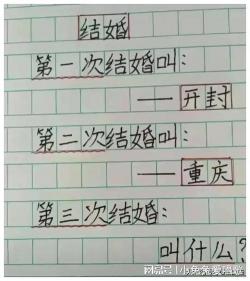 结婚
第一次结婚叫:
——开封
第二次结婚叫:
——重庆
第三次结婚:
叫什么?
搜狐号@小兔兔爱唱歌